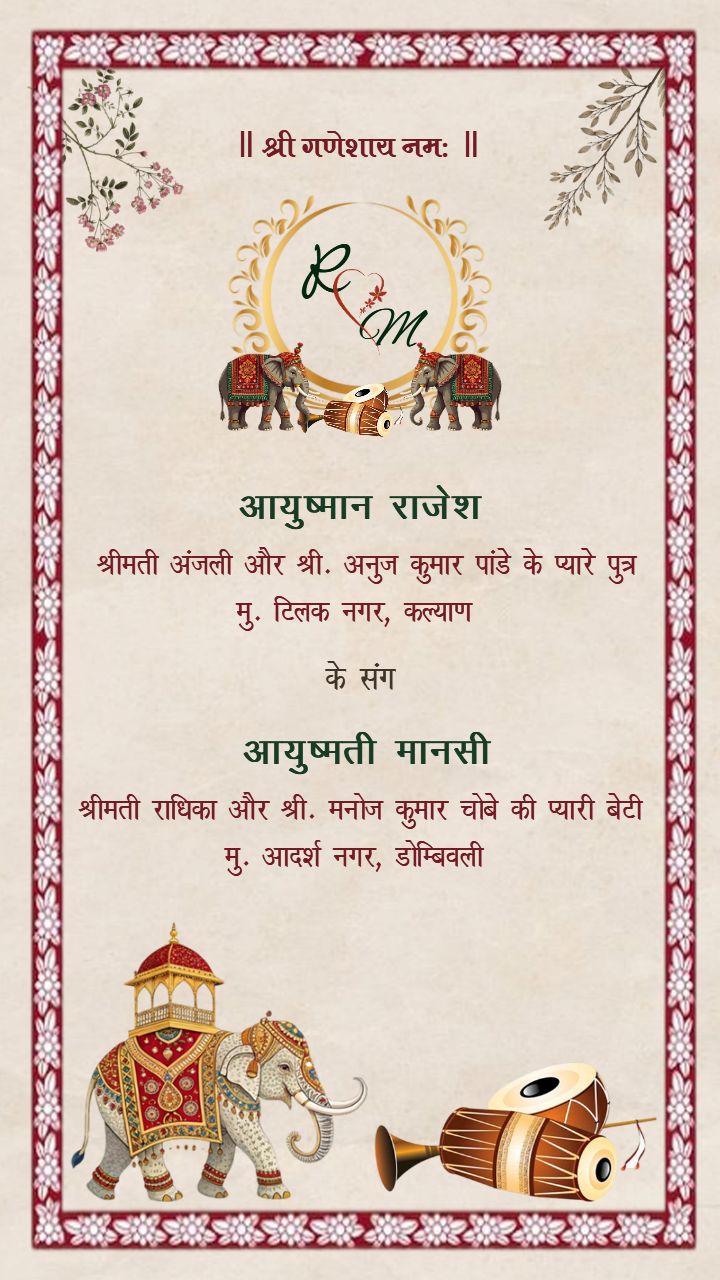 ॥ श्री गणेशाय नमः ॥
R M
आयुष्मान राजेश
श्रीमती अंजली और श्री. अनुज कुमार पांडे के प्यारे पुत्र
मु. टिलक नगर, कल्याण
के संग
आयुष्मती मानसी
श्रीमती राधिका और श्री. मनोज कुमार चोबे की प्यारी बेटी
मु. आदर्श नगर, डोम्बिवली